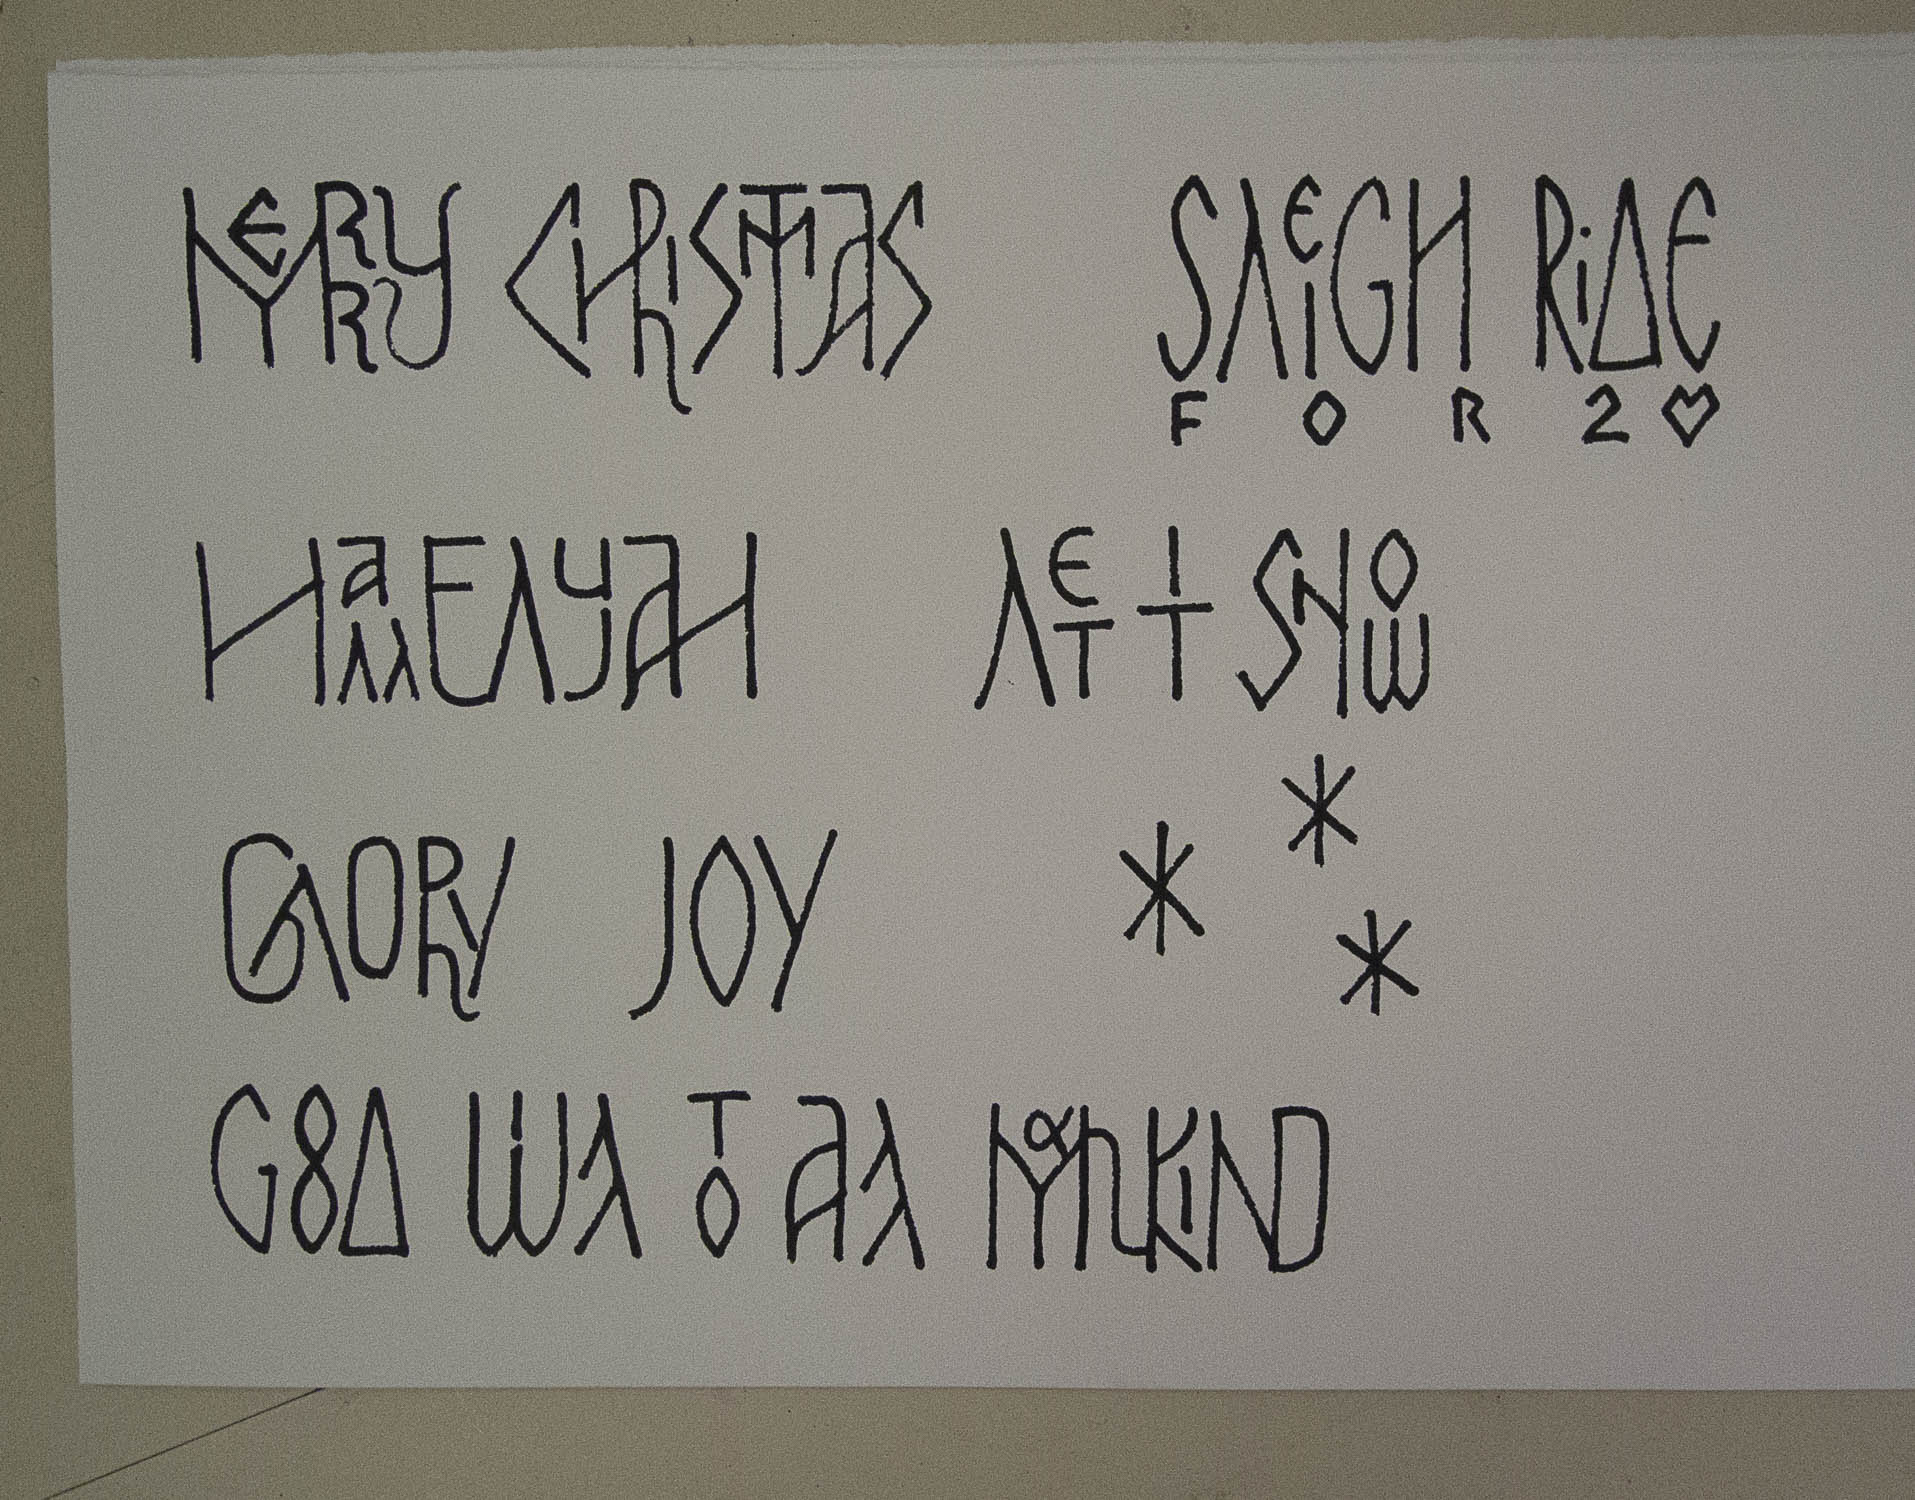 MERRY CHRISTMAS SLEIGH RIDE
FOR 2 ♡
HALLELUJAH LET IT SNOW
GLORY JOY
GOOD WILL TO ALL MANKIND